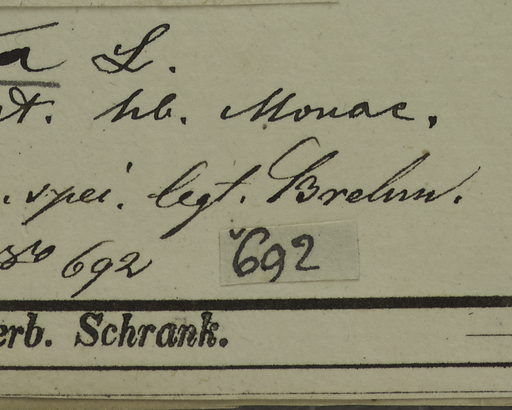 a L.
t. hb. Monac.
. spei. legt. Brehm.
692 692
erb. Schrank.